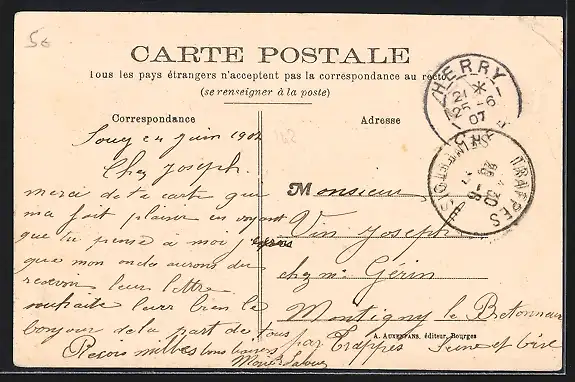 50
CARTE POSTALE
Tous les pays étrangers n'acceptent pas la correspondance au recto
(se renseigner à la poste)
Correspondance
Adresse
HERRY
25 -6
07
TRAPPES
24 juin 1907
Cher Joseph.
merci de ta carte que
ma fait plaisir en voyant
que tu pense à moi j'
que mon oncle aurons du
recevoir leur lettre
souhaite leur bien le
bonjour de la part de tous
Reçois milles bons baisers
Monsieur
Vin Joseph
chez Mr Gérin
Montigny le Bretonneux
par Trappes Seine et Oise
A. AUXENFANS, éditeur, Bourges